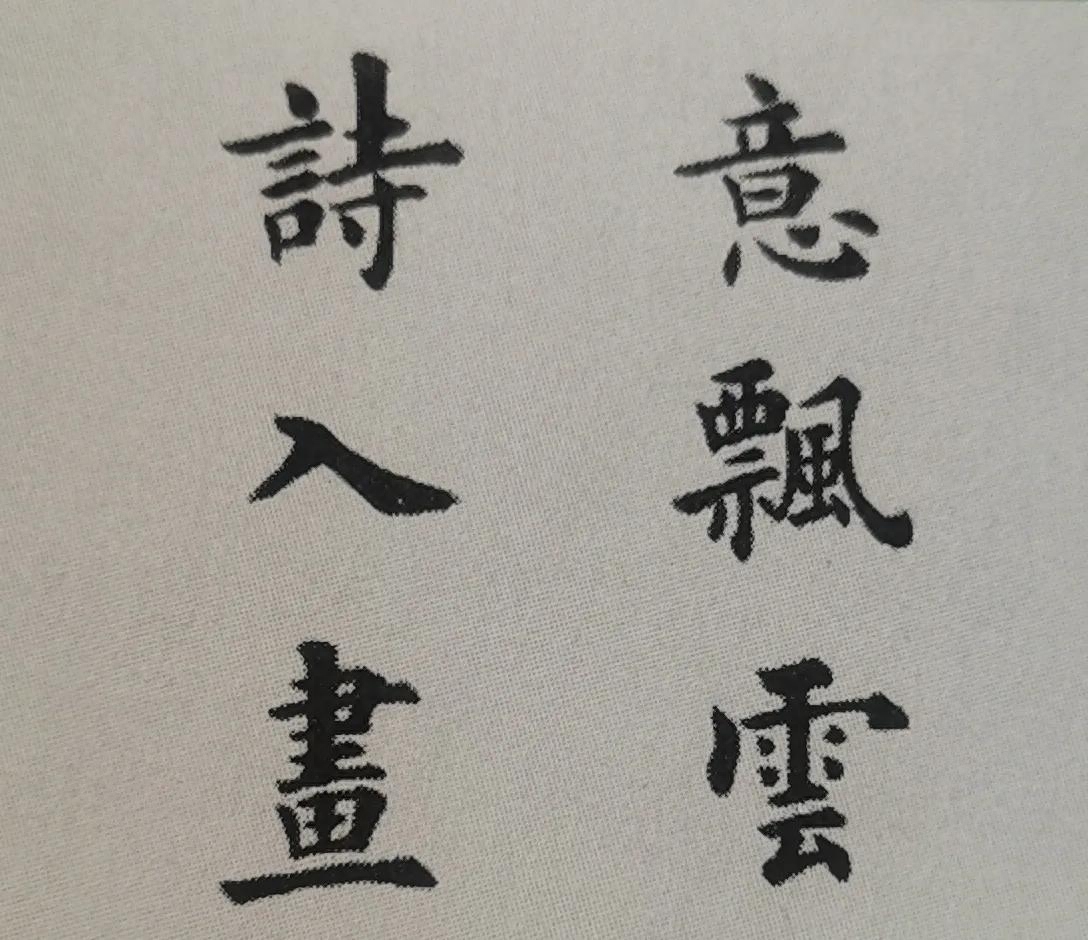 意飄雲
詩入畫